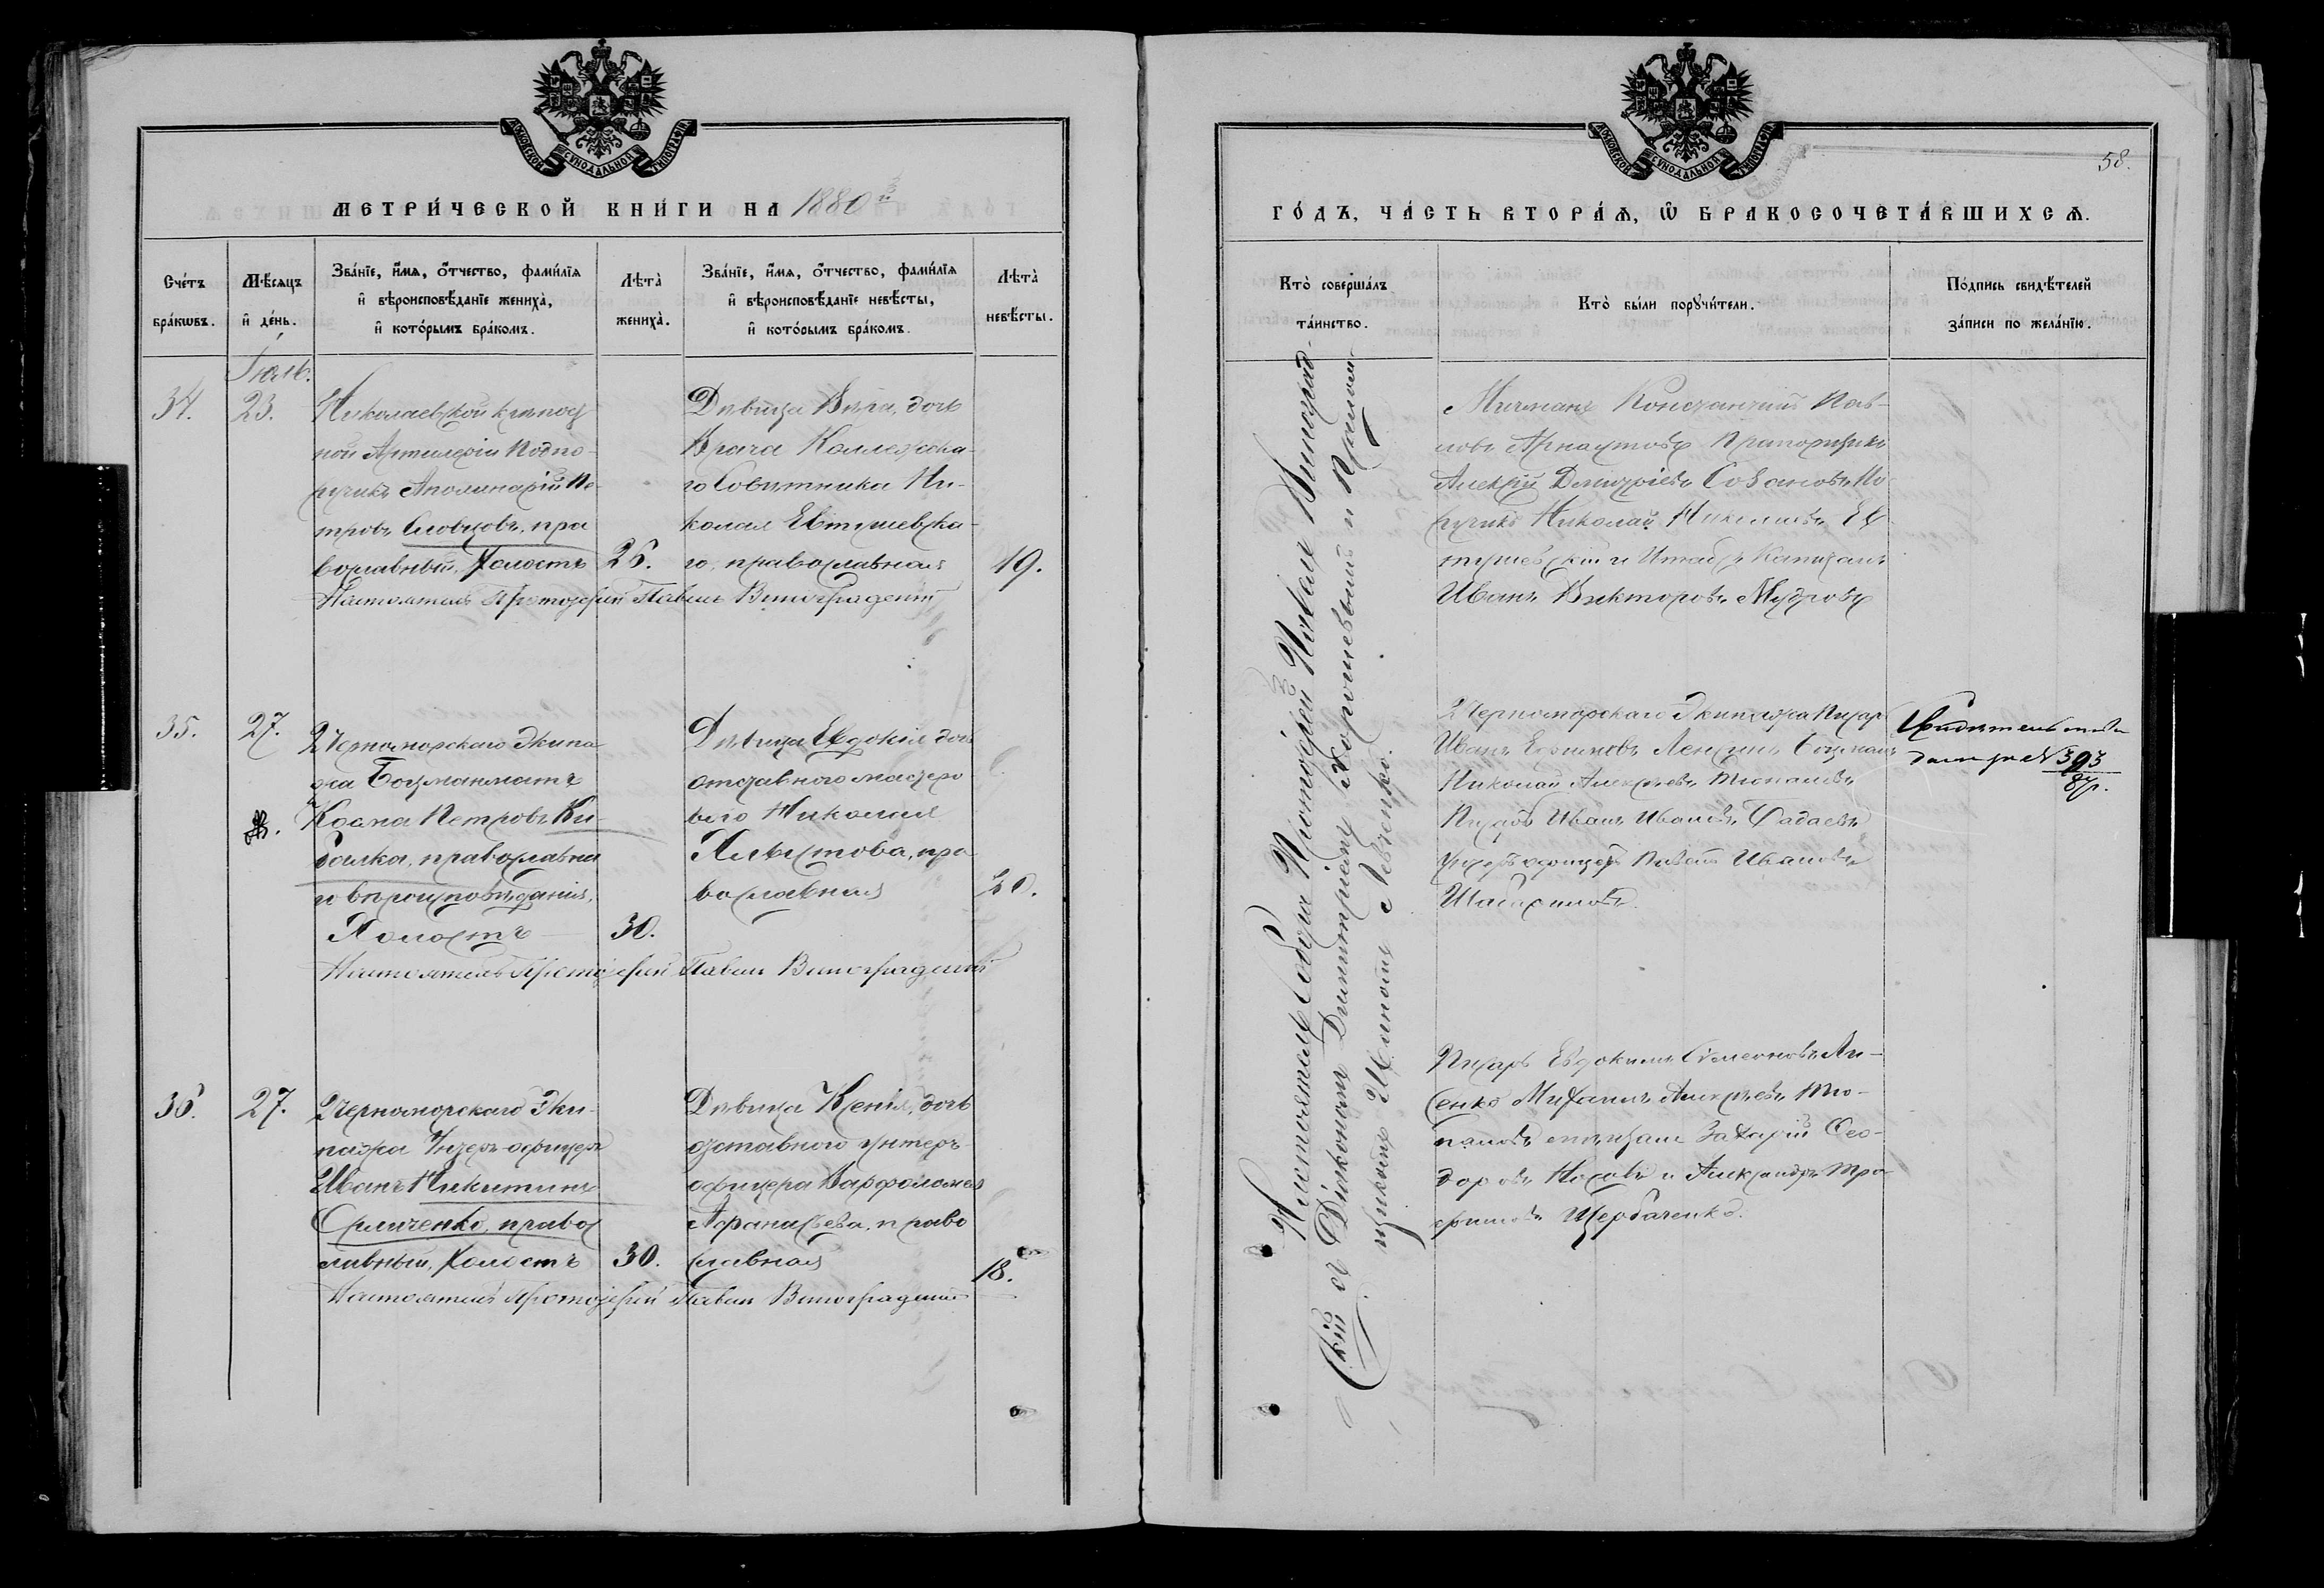 МОСКОВСКОЙ СѴНОДАЛЬНОЙ ТИПОГРАФІИ
МЕТРИ́ЧЕСКОЙ КНИ́ГИ НА 1880й
Сче́тъ бра́кѡвъ.
Мѣ́сяцъ и҆ де́нь.
Зва́нїе, и҆́мѧ, ѻ҆́тчество, фами́лїѧ и҆ вѣроисповѣ́данїе жениха̀, и҆ кото́рымъ бра́комъ.
Лѣ́та̀ жениха̀.
Зва́нїе, и҆́мѧ, ѻ҆́тчество, фами́лїѧ и҆ вѣроисповѣ́данїе невѣ́сты, и҆ кото́рымъ бра́комъ.
Лѣ́та̀ невѣ́сты.
Іюль.
34.
23.
Николаевской крѣпост
ной Артилеріи Подпо-
ручикъ Аполинарій Пе-
тровъ Словцовъ, пра
вославный, Холостъ
26.
Дѣвица Вѣра, дочь
Врача Коллежска-
го Совѣтника Ни-
колая Евтушевска-
го, православная
19.
Настоятель Протоіерей Павелъ Виноградскій
35.
27.
2 Черноморскаго Экипа
жа Боцманматъ
Козма Петровъ Ки-
балка, православна
го вѣроисповѣданія,
Холостъ
30.
Дѣвица Евдокія дочь
отставного мастеро
вого Николая
православная
20.
Настоятель Протоіерей Павелъ Виноградскій
36.
27.
2 Черноморскаго Эки-
пажа Унтеръ-офицеръ
Иванъ Никитинъ
православный, холостъ
30.
Дѣвица Ксенія, дочь
отставного унтеръ-
офицера Варфоломея
Афанасьева, право
славная
18.
Настоятель Протоіерей Павелъ Виноградскій
МОСКОВСКОЙ СѴНОДАЛЬНОЙ ТИПОГРАФІИ
58.
ГО́ДЪ, ЧА́СТЬ ВТОРА́Ѧ, Ѡ҆ БРАКОСОЧЕТА́ВШИХСѦ.
Кто̀ соверша́лъ та́инство.
Кто̀ бы́ли порꙋчи́тели.
По́дпись свидѣ́телей за́писи по жела́нїю.
Настоятель Собора Протоіерей Павелъ Виноград-
скій съ Діакономъ Димитріемъ Хорошевскій и Псалом-
щикомъ Левченко.
Мичманъ Константинъ Пав-
ловъ Арнаутовъ Прапорщикъ
Алексѣй Дмитріевъ По
ручикъ Николай Николаевъ Ев
тушевскій и Штабсъ Капитанъ
Иванъ Викторовъ Мудровъ
2 Черноморскаго Экипажа Писарь
Иванъ Ефимовъ Боцманъ
Николай Алексѣевъ
Писарь Иванъ Ивановъ Фадаевъ
Унтеръ офицеръ Павелъ Ивановъ
Свидѣтельство
дано за № 393
Писарь Евдокимъ Симеоновъ Ли-
сенко Михаилъ Алексѣевъ Тю-
Захарій Фео-
доровъ и Александръ Тро
фимовъ Щербаченко.